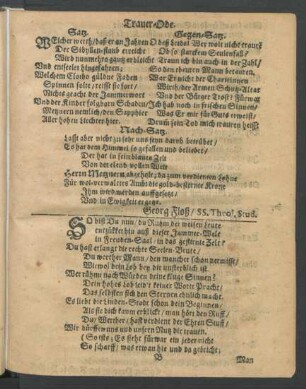 Trauer-Ode.
Satz. Gegen-Satz.
WElcher werth/ daß er an Jahren
Der Sibyllen-staub erreicht
Wird nunmehro gantz erbleicht
Und entseelet hingefahren;
Welchem Clotho güldne Faden
Spinnen solt/ reist sie fort/
Nichts acht der Jammerwort
Und der Kinder folgbarn Schaden/
Metznern nemlich/ den Sapphier
Aller hohen Liechter hier.
O deß Leides! Wer wolt nicht trauren
Ob so starckem Seelenfall/
Traun ich bin auch in der Zahl/
So den theuren Mann betauren,
Wer Er nicht der
Der Armen Schutz-Altar
Und der Bürger Trost? Fürwar
Ich hab noch in frischen Sinnen/
Was Er mir für Guts erweist/
Drumb sein Tod mich trauren heist.
Nach-Satz.
Laßt aber nicht zu sehr uns seyn darob betrübet/
Es hat dem Himmel so gefallen und beliebet/
Der hat in seine blaue Zelt
Von der eteln-vollen Welt
Herrn Metznern abgeholt/ da zum verdienten Lohne
Für wol-verwaltes Ambt die gold-besternte Krone
Ihm wird werden auffgesetzt/
Und in Ewigkeit ergetzt.
Georg Floß/ SS. Theol. Stud.
SO bist Du nun/ da Ruhm bey weisen Leute
entzückt hin auß dieser Jammer-Welt
in Freuden-Saal/ in das gestirnte Zelt?
Du hast erlangt die rechte Seelen-Beute/
Du werther Mann/ den mancher schon vermißt/
Wiewol dein Lob bey die unsterblich ist.
Wer rühmt nach Würden deine kluge Sinnen?
Dein hohes Lob leidt keiner Worte Pracht/
Das selbsten sich den Sternen ehnlich macht.
Es liebt die Linden-Stadt schon dein Beginnen/
Als sie dich kaum erblickt/ man hört den Ruff/
Du/ Werther/ hast verdient der Ehren Stuff/
Wir dürffen uns und unsern Nutz dir trauen.
(So offt: Es steht fürwar ein jeder nicht
So scharff/ was etwan hie und da gebricht;
B
Man